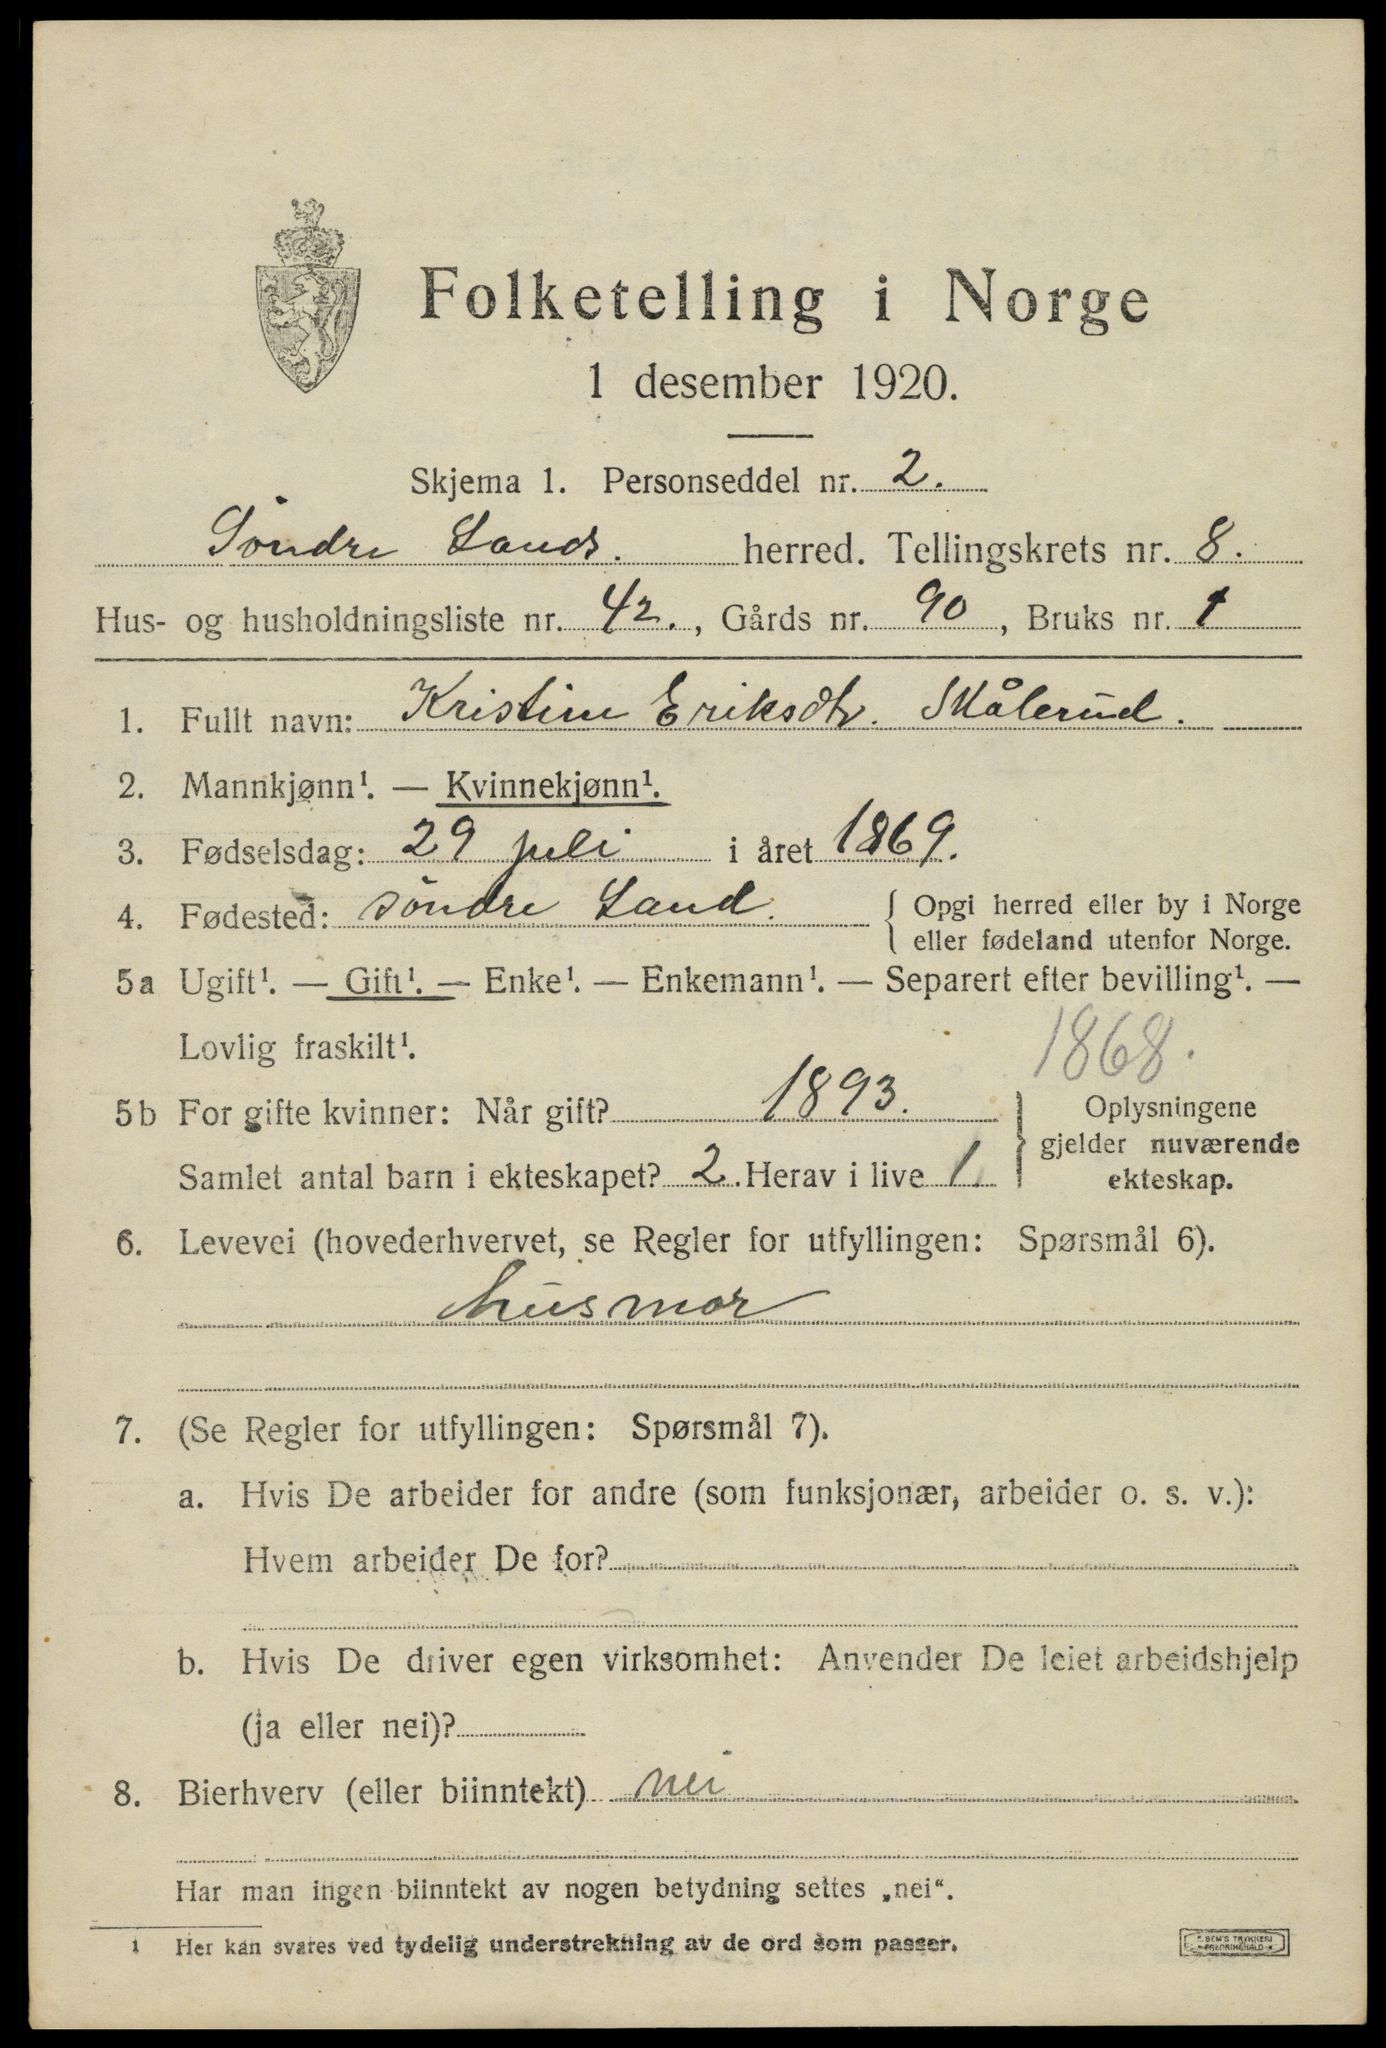 Folketelling i Norge
1 desember 1920.
Skjema 1. Personseddel nr. 2.
Söndre Lands. herred. Tellingskrets nr. 8.
Hus- og husholdningsliste nr. 42., Gårds nr. 90, Bruks nr. 1
1. Fullt navn: Kristine Eriksdtr. Skålerud.
2. Mannkjønn¹. — Kvinnekjønn¹.
3. Fødselsdag: 29 juli i året 1869.
4. Fødested: söndre Land. { Opgi herred eller by i Norge
eller fødeland utenfor Norge.
5a Ugift¹. — Gift¹. — Enke¹. — Enkemann¹. — Separert efter bevilling¹. —
Lovlig fraskilt¹.
1868.
5b For gifte kvinner: Når gift? 1893.
Samlet antal barn i ekteskapet? 2. Herav i live 1.
} Oplysningene
gjelder nuværende
ekteskap.
6. Levevei (hovederhvervet, se Regler for utfyllingen: Spørsmål 6).
husmor
7. (Se Regler for utfyllingen: Spørsmål 7).
a. Hvis De arbeider for andre (som funksjonær, arbeider o. s. v.):
Hvem arbeider De for?
b. Hvis De driver egen virksomhet: Anvender De leiet arbeidshjelp
(ja eller nei)?
8. Bierhverv (eller biinntekt) nei
Har man ingen biinntekt av nogen betydning settes „nei“.
1 Her kan svares ved tydelig understrekning av de ord som passer.
E. SEM'S TRYKKERI
FREDRIKSHALD